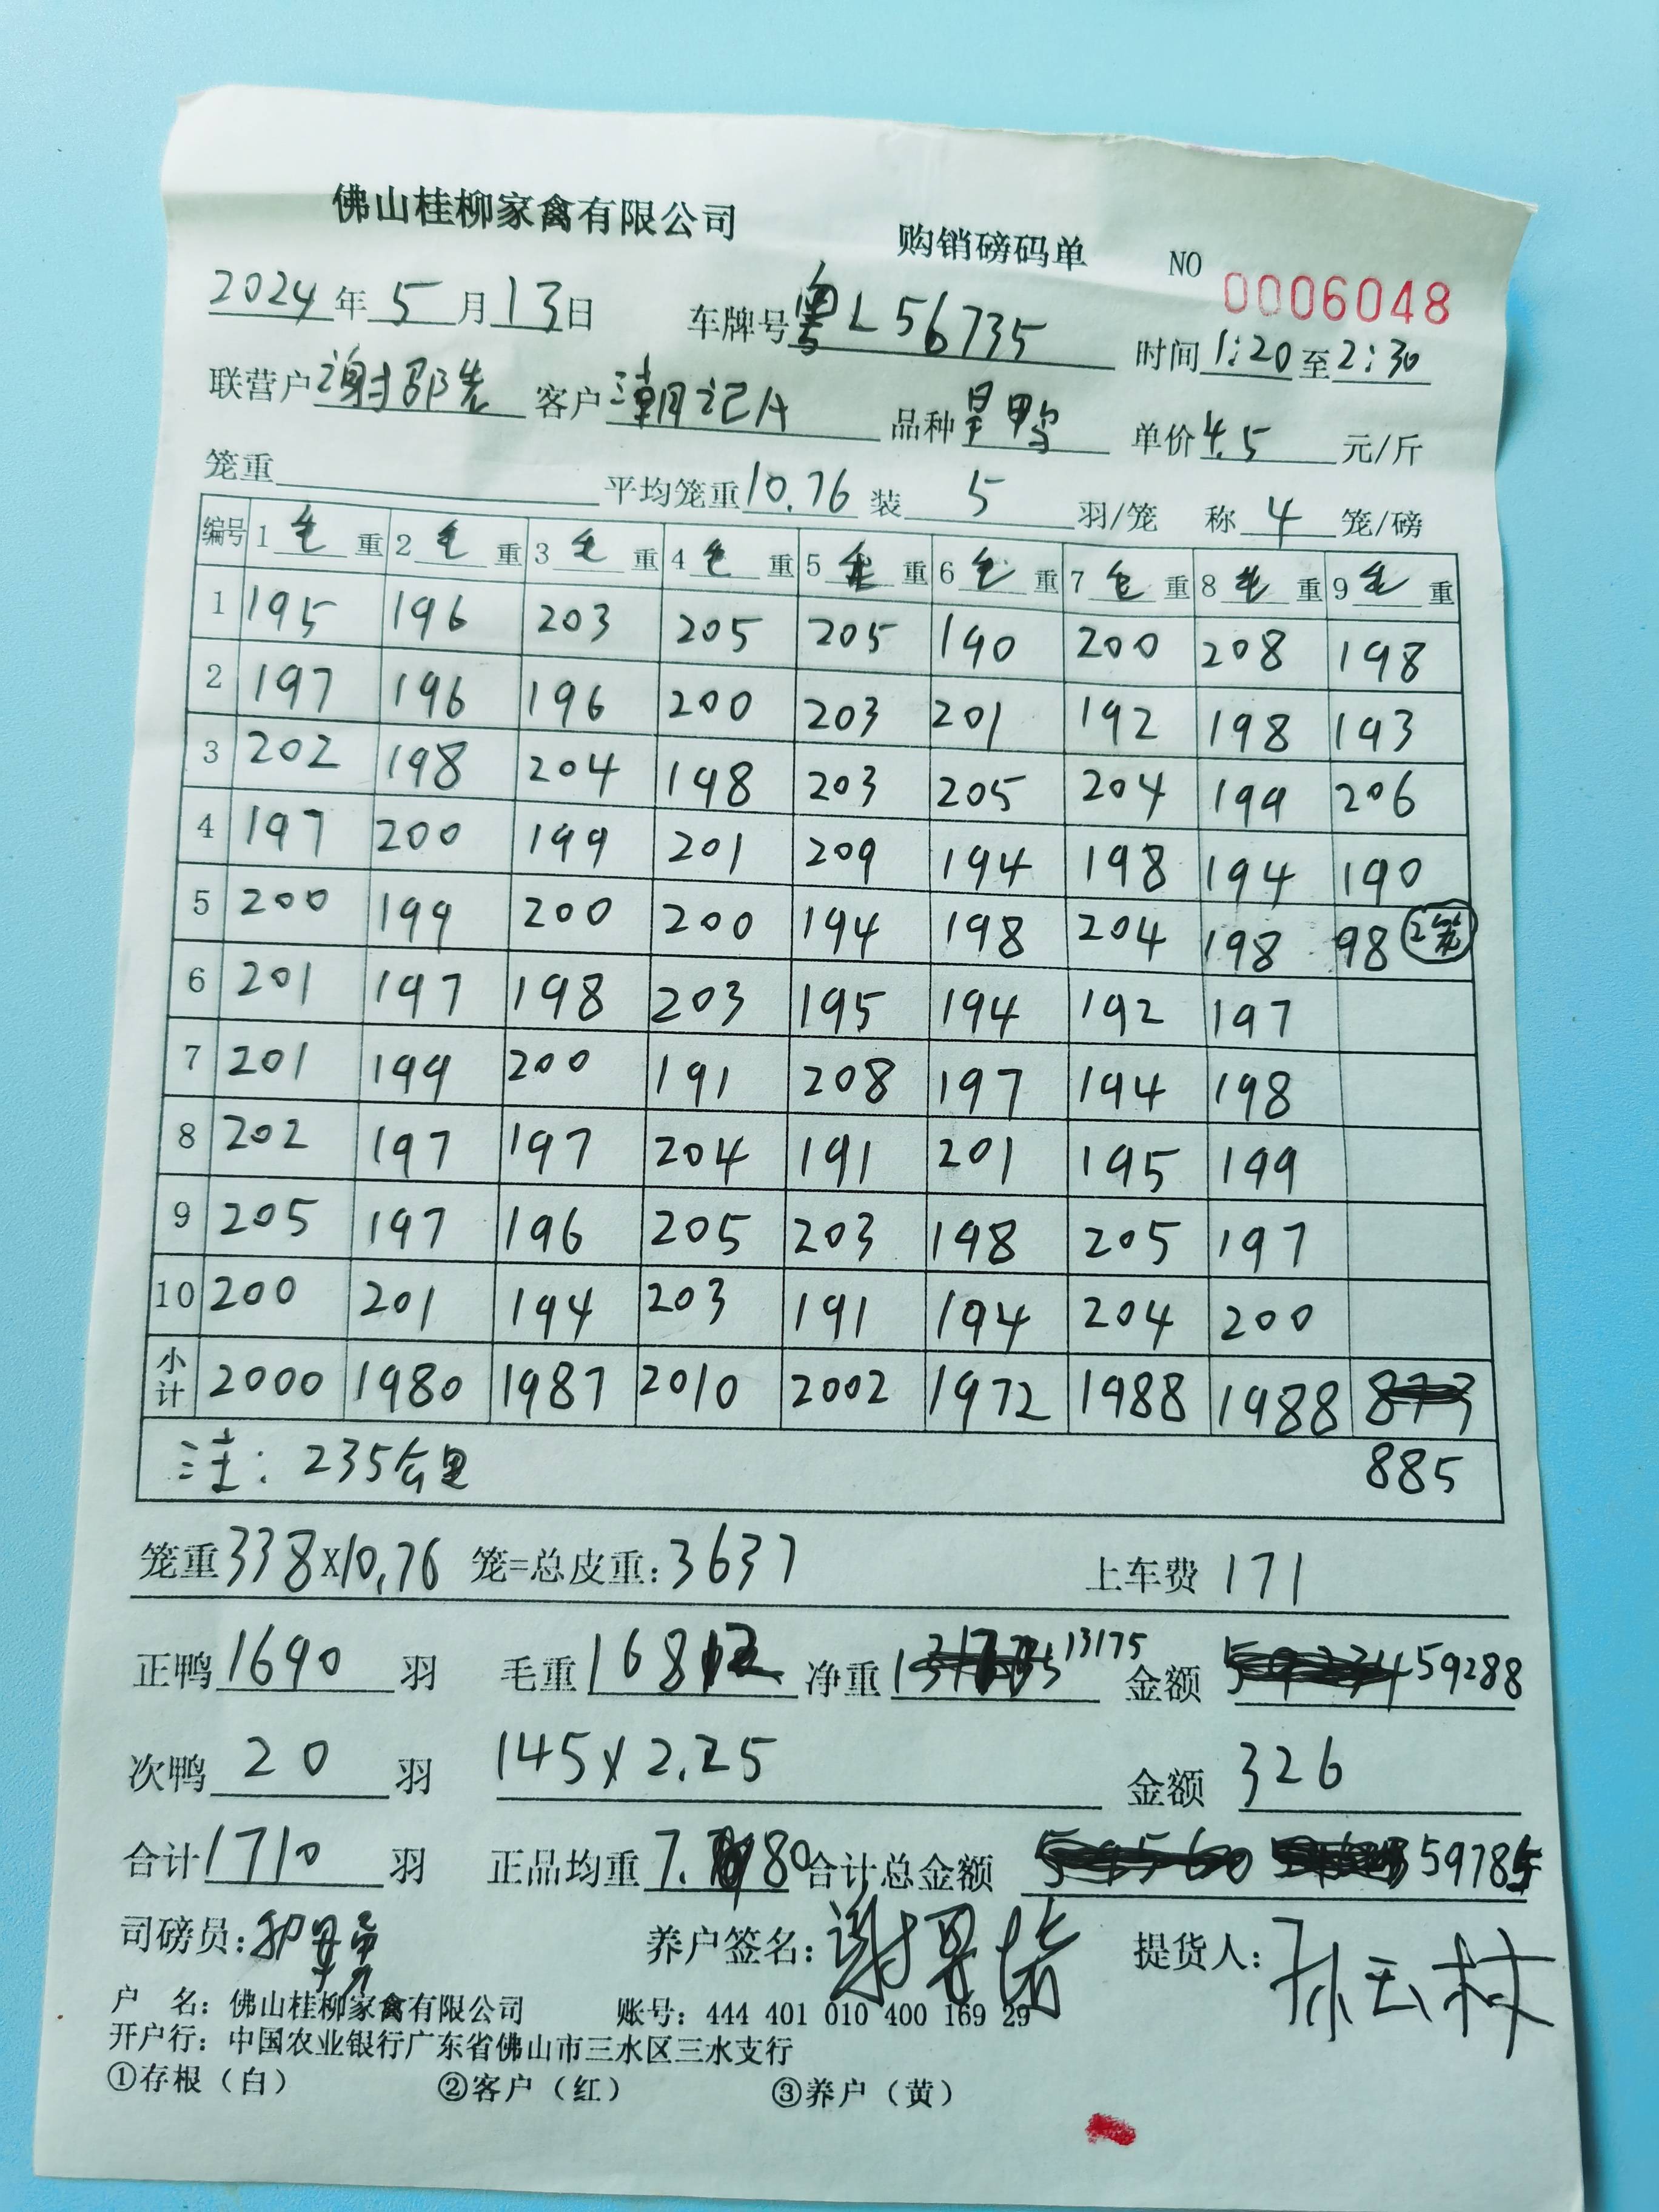 佛山桂柳家禽有限公司 购销磅码单 NO 0006048
2024年5月13日 车牌号粤L56735 时间1:20至2:30
联营户谢邵先 客户潮记A 品种旱鸭 单价4.5元/斤
笼重 平均笼重10.76装5羽/笼 称4笼/磅
编号 1毛重 2毛重 3毛重 4毛重 5毛重 6毛重 7毛重 8毛重 9毛重
1 195 196 203 205 205 190 200 208 198
2 197 196 196 200 203 201 192 198 193
3 202 198 204 198 203 205 204 199 206
4 197 200 199 201 209 194 198 194 190
5 200 199 200 200 194 198 204 198 98 2笼
6 201 197 198 203 195 194 192 197
7 201 199 200 191 208 197 194 198
8 202 197 197 204 191 201 195 199
9 205 197 196 205 203 198 205 197
10 200 201 194 203 191 194 204 200
小计 2000 1980 1987 2010 2002 1972 1988 1988
注:235公里 885
笼重338X10.76笼=总皮重:3637 上车费171
正鸭1690羽 毛重16812 净重13175 金额59288
次鸭20羽 145X2.25 金额326
合计1710羽 正品均重7.80合计总金额 59785
司磅员: 养户签名: 提货人:孙云林
户 名:佛山桂柳家禽有限公司 账号:444 401 010 400 169 29
开户行:中国农业银行广东省佛山市三水区三水支行
①存根(白) ②客户(红) ③养户(黄)